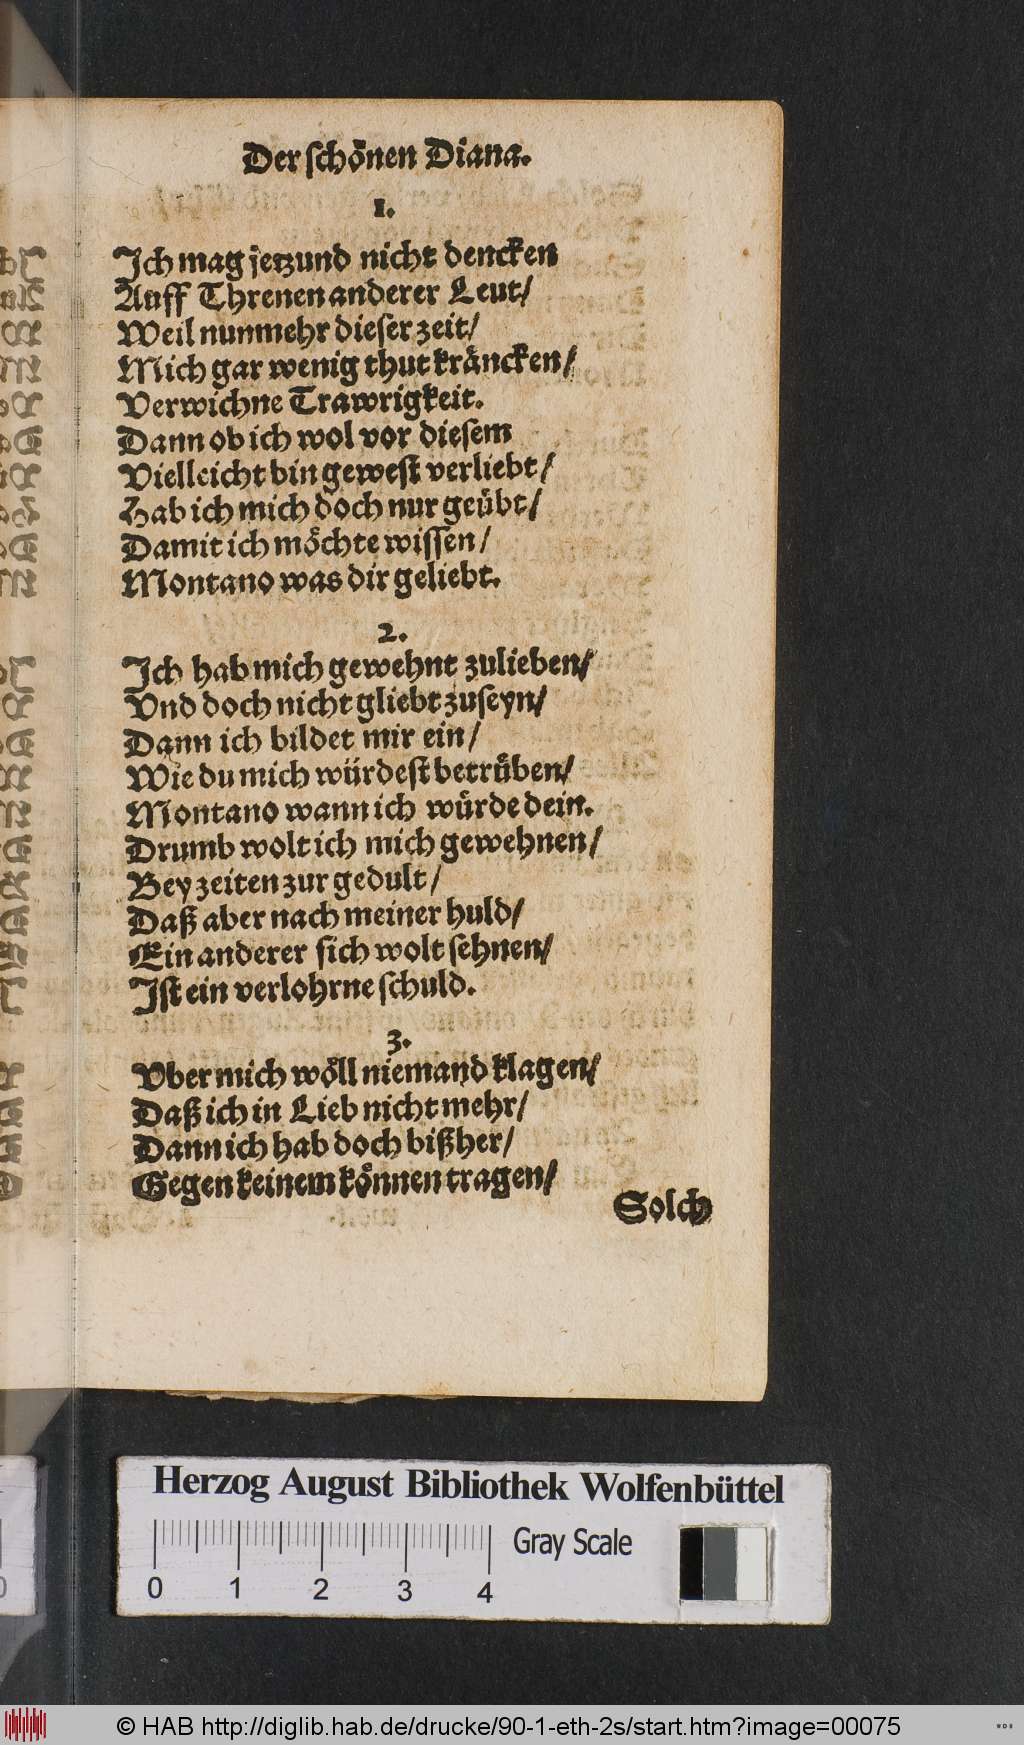 Der schönen Diana.
1.
Ich mag jetzund nicht dencken
Auff Threnen anderer Leut/
Weil nunmehr dieser zeit/
Mich gar wenig thut kräncken/
Verwichne Trawrigkeit.
Dann ob ich wol vor diesem
Vielleicht bin gewest verliebt/
Hab ich mich doch nur geübt/
Damit ich möchte wissen/
Montano was dir geliebt.
2.
Ich hab mich gewehnt zulieben/
Vnd doch nicht gliebt zuseyn/
Dann ich bildet mir ein/
Wie du mich würdest betrüben/
Montano wann ich würde dein.
Drumb wolt ich mich gewehnen/
Bey zeiten zur gedult/
Daß aber nach meiner huld/
Ein anderer sich wolt sehnen/
Ist ein verlohrne schuld.
3.
Vber mich wöll niemand klagen/
Daß ich in Lieb nicht mehr/
Dann ich hab doch bißher/
Gegen keinem können tragen/
Solch
Herzog August Bibliothek Wolfenbüttel
Gray Scale
0 1 2 3 4
© HAB http://diglib.hab.de/drucke/90-1-eth-2s/start.htm?image=00075